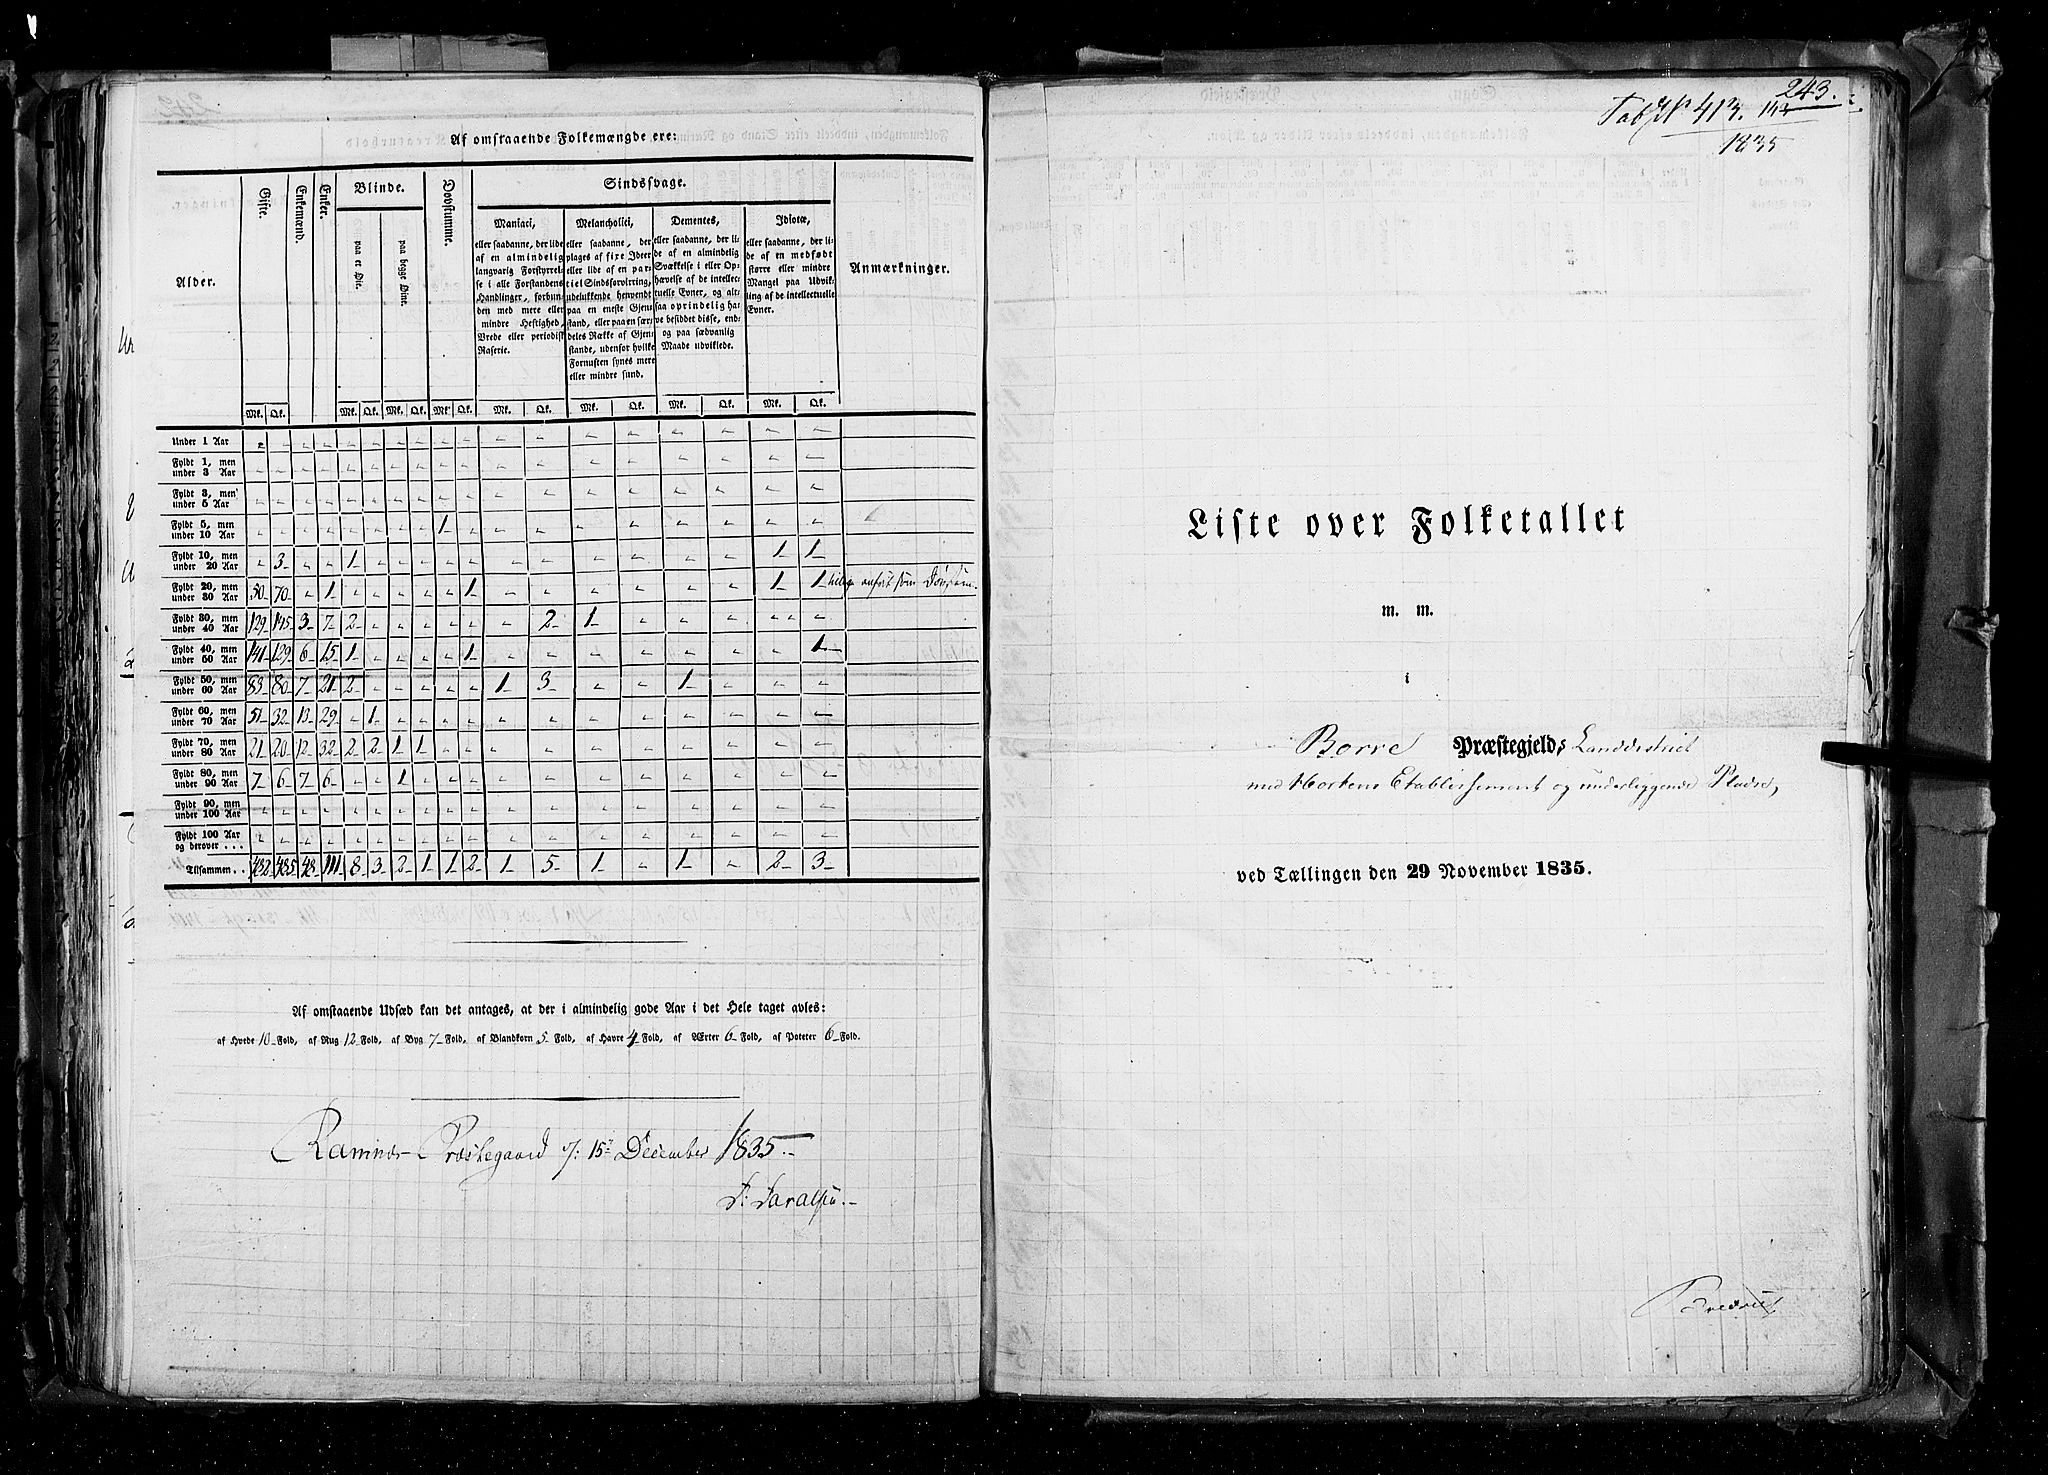 Af omstaaende Folkemængde ere:
Alder. Gifte. Enkemænd. Enker. Blinde. Døvstumme. Sindssvage. Anmærkninger.
paa et Øie. paa begge Øine.
Maniaci,
eller saadanne, der lide
af en almindelig
langvarig Forstyrrel-
se i alle Forstandens
Handlinger, forbun-
den med mere eller
mindre Heftighed,
Vrede eller periodisk
Raserie.
Melancholici,
eller saadanne, der
plages af fixe Ideer
eller lide af en par-
tiel Sindsforvirring,
udelukkende henvendt
paa en eneste Gjen-
stand, eller paa en sær-
deles Række af Gjen-
stande, udenfor hvilke
Fornuften synes mere
eller mindre sund.
Dementes,
eller saadanne, der li-
de af en almindelig
Svækkelse i eller Op-
hævelse af de intellec-
tuelle Evner, og alt-
saa oprindelig ha-
ve besiddet disse, end-
og paa sædvanlig
Maade udviklede.
Idiotæ,
eller saadanne, der li-
de af en medfødt
større eller mindre
Mangel paa Udvik-
ling af de intellectuelle
Evner.
Mk. Qk. Mk. Qk. Mk. Qk. Mk. Qk. Mk. Qk. Mk. Qk. Mk. Qk. Mk. Qk.
Under 1 Aar
Fyldt 1, men
under 3 Aar
Fyldt 3, men
under 5 Aar
Fyldt 5, men
under 10 Aar 1
Fyldt 10, men
under 20 Aar 3 1 1 1
Fyldt 20, men
under 30 Aar 50 70 1 1 1 1 anført som
Fyldt 30, men
under 40 Aar 129 145 3 7 2 2 1
Fyldt 40, men
under 50 Aar 141 129 6 15 1 1 1
Fyldt 50, men
under 60 Aar 83 80 7 21 2 1 3 1
Fyldt 60, men
under 70 Aar 51 32 13 29 1
Fyldt 70, men
under 80 Aar 21 20 12 32 2 2 1 1
Fyldt 80, men
under 90 Aar 7 6 7 6 1
Fyldt 90, men
under 100 Aar
Fyldt 100 Aar
og derover . . .
Tilsammen . . 482 485 48 111 8 3 2 1 1 2 1 5 1 1 2 3
Af omstaaende Udsæd kan det antages, at der i almindelig gode Aar i det Hele taget avles:
af Hvede 10 Fold, af Rug 12 Fold, af Byg 7 Fold, af Blandkorn 5 Fold, af Havre 4 Fold, af Ærter 6 Fold, af Poteter 6 Fold.
Ramnæs Præstegaard d: 15 December 1835
243.
Tab No 413.
1835
Liste over Folketallet
m. m.
i
Borre Præstegjelds Landdistrict
med Hortens Etablissement og underliggende Pladse,
ved Tællingen den 29 November 1835.